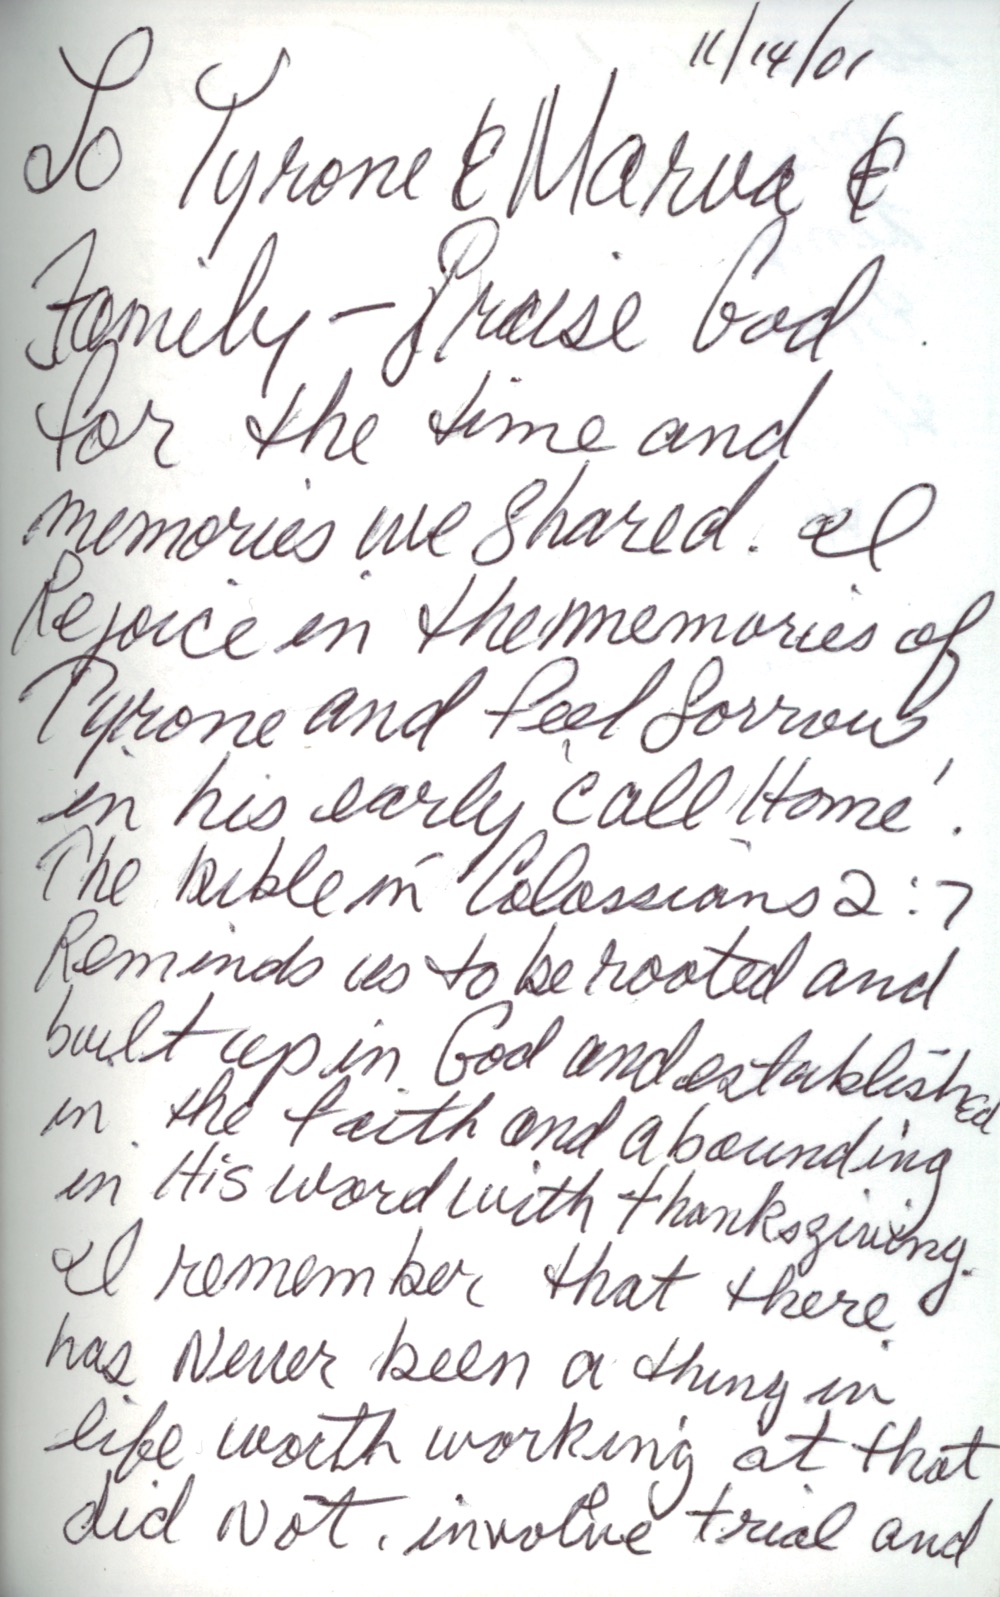 11/14/01
To Tyrone & Marva &
Family - Praise God
for the time and
memories we shared. I
Rejoice in the memories of
Tyrone and feel sorrow
in his early 'call Home'.
The bible in Colossians 2:7
Reminds us to be rooted and
built up in God and established
in the faith and abounding
in His word with thanksgiving.
I remember that there
has Never been a thing in
life worth working at that
did Not involve trial and